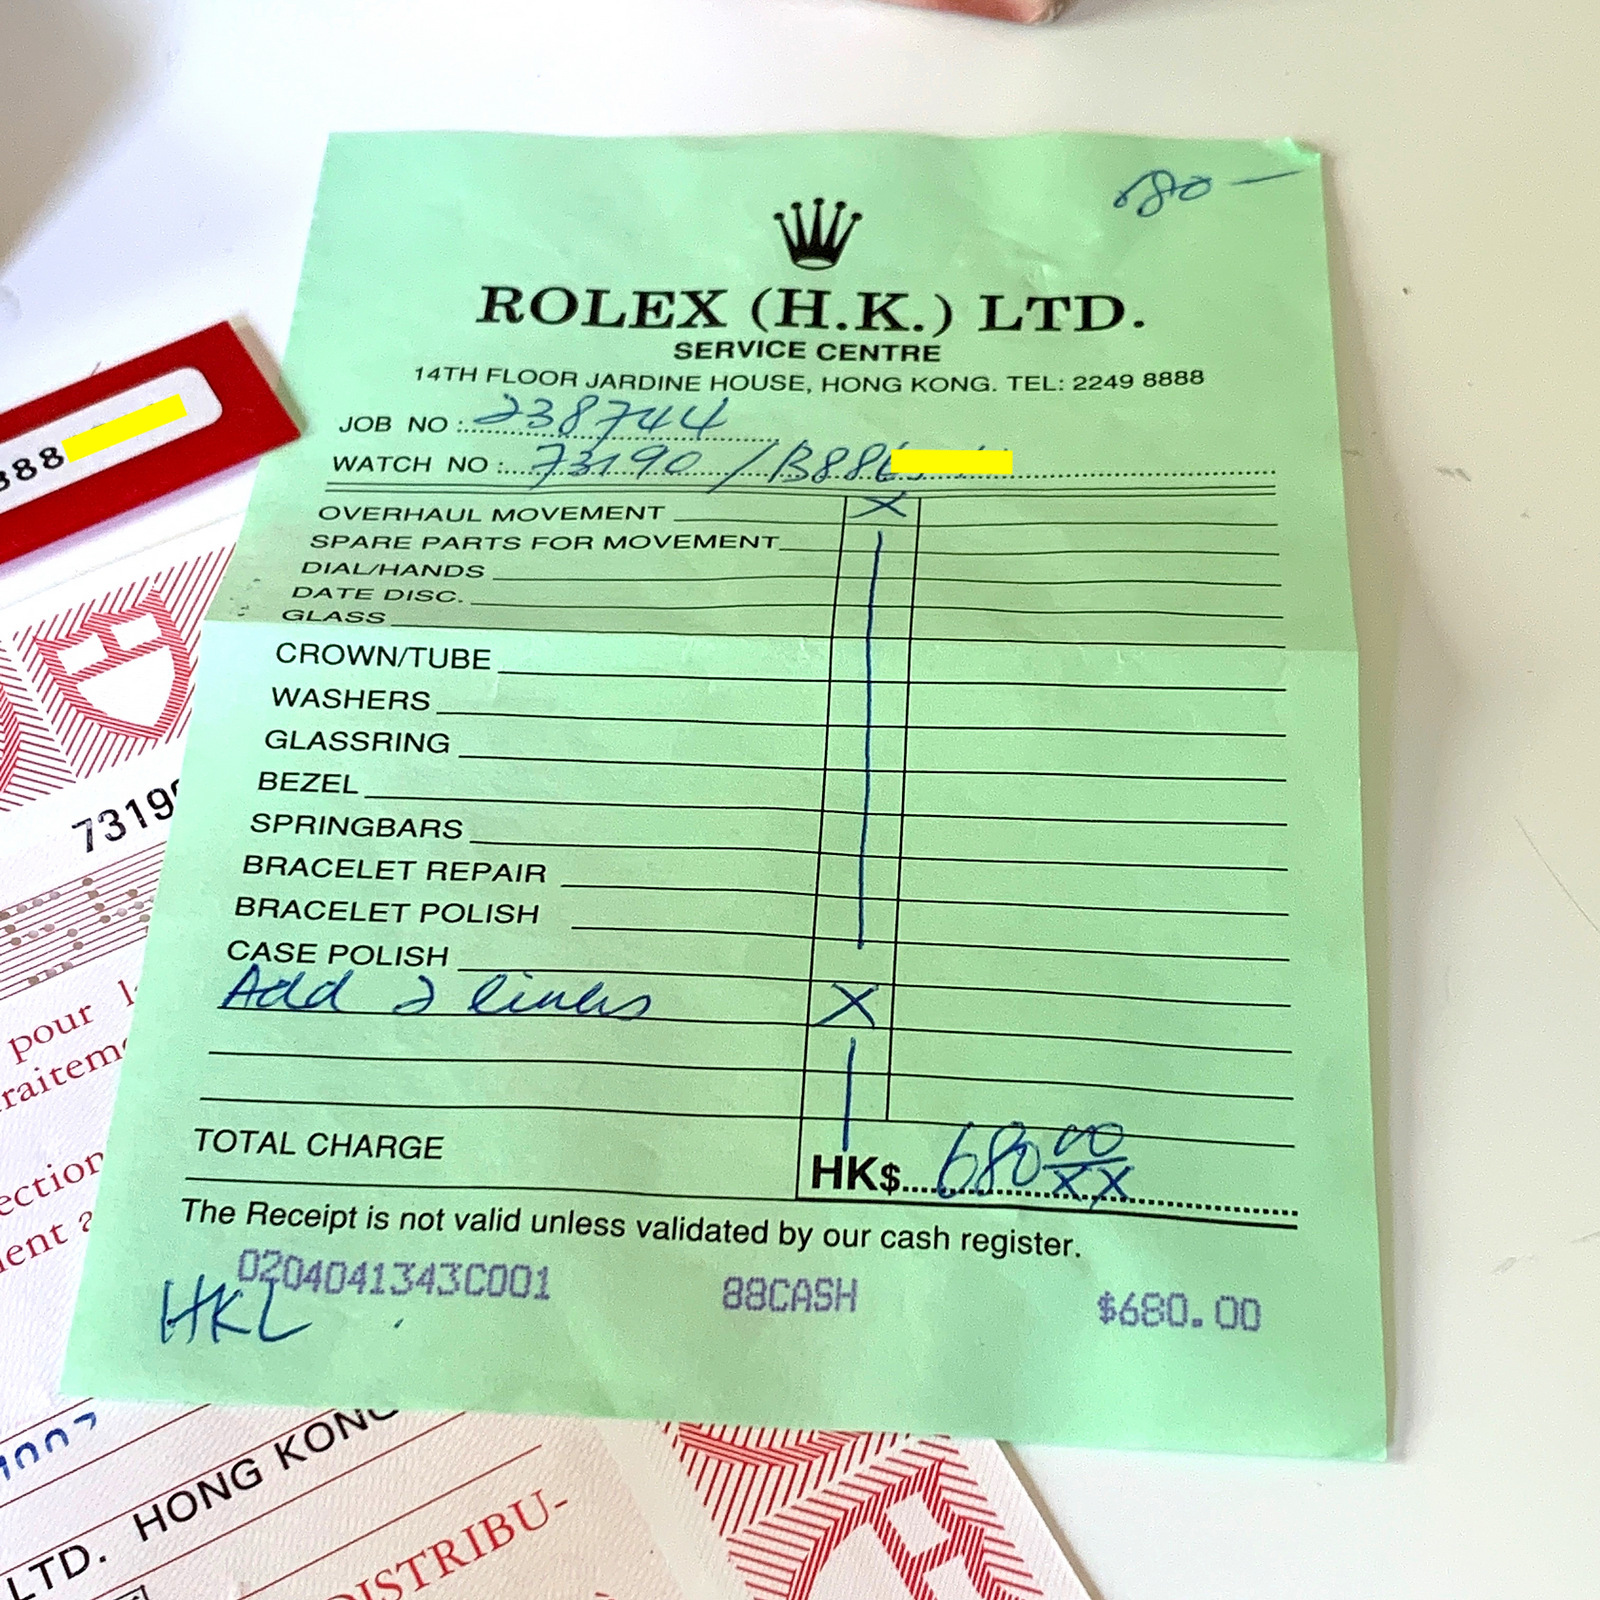 680 —
ROLEX (H.K.) LTD.
SERVICE CENTRE
14TH FLOOR JARDINE HOUSE, HONG KONG. TEL: 2249 8888
JOB NO : 238744
WATCH NO : 73190 / B88
OVERHAUL MOVEMENT X
SPARE PARTS FOR MOVEMENT
DIAL/HANDS
DATE DISC.
GLASS
CROWN/TUBE
WASHERS
GLASSRING
BEZEL
SPRINGBARS
BRACELET REPAIR
BRACELET POLISH
CASE POLISH
Add 2 links X
TOTAL CHARGE HK$ 680 00/XX
The Receipt is not valid unless validated by our cash register.
0204041343C001 88CASH $680.00
HKL
388
7319
pour l
raiteme
ection
ent a
LTD. HONG KONG
DISTRIBU-